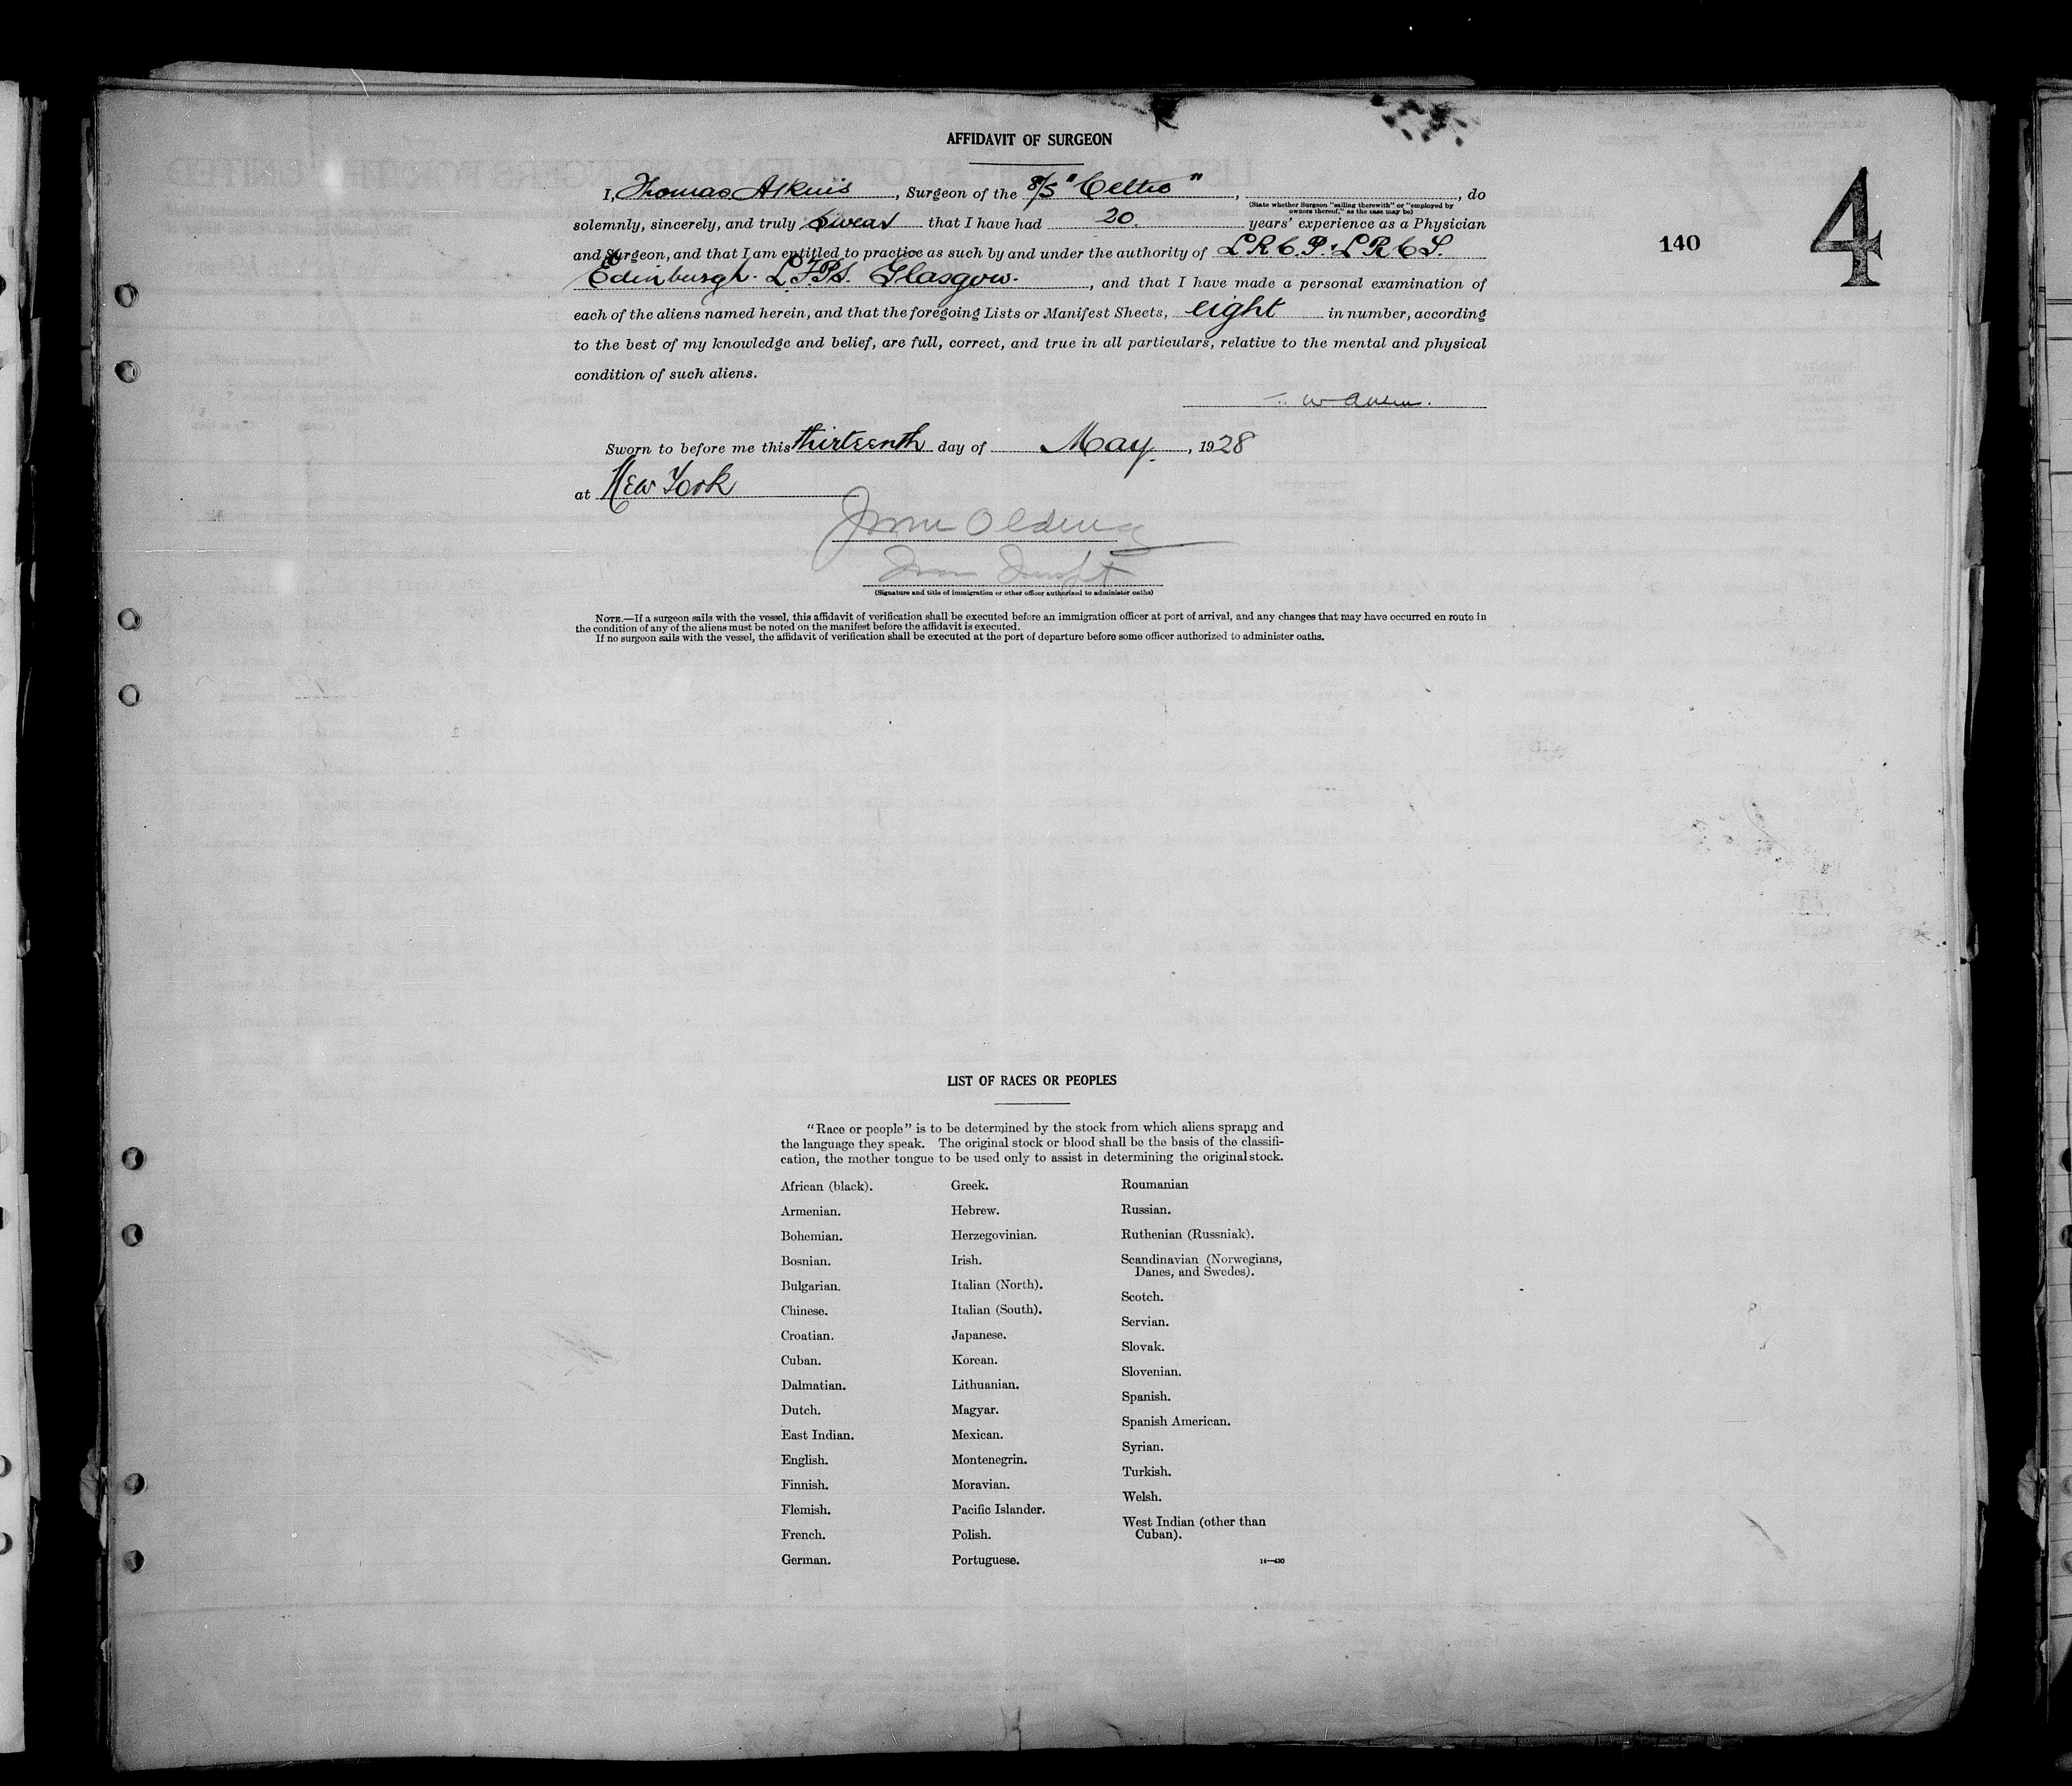 AFFIDAVIT OF SURGEON
I, Thomas Atkins, Surgeon of the S/S "Celtic", , do
(State whether Surgeon "sailing therewith" or "employed by
owners thereof," as the case may be)
solemnly, sincerely, and truly swear that I have had 20. years' experience as a Physician
and Surgeon, and that I am entitled to practice as such by and under the authority of L.R.C.P. L.R.C.S.
Edinburgh. L.F.P.S. Glasgow. , and that I have made a personal examination of
each of the aliens named herein, and that the foregoing Lists or Manifest Sheets, eight in number, according
to the best of my knowledge and belief, are full, correct, and true in all particulars, relative to the mental and physical
condition of such aliens.
Sworn to before me this thirteenth day of May, 1928
at New York
(Signature and title of immigration or other officer authorized to administer oaths)
NOTE.—If a surgeon sails with the vessel, this affidavit of verification shall be executed before an immigration officer at port of arrival, and any changes that may have occurred en route in
the condition of any of the aliens must be noted on the manifest before the affidavit is executed.
If no surgeon sails with the vessel, the affidavit of verification shall be executed at the port of departure before some officer authorized to administer oaths.
140
4
LIST OF RACES OR PEOPLES
"Race or people" is to be determined by the stock from which aliens sprang and
the language they speak. The original stock or blood shall be the basis of the classifi-
cation, the mother tongue to be used only to assist in determining the original stock.
African (black).
Armenian.
Bohemian.
Bosnian.
Bulgarian.
Chinese.
Croatian.
Cuban.
Dalmatian.
Dutch.
East Indian.
English.
Finnish.
Flemish.
French.
German.
Greek.
Hebrew.
Herzegovinian.
Irish.
Italian (North).
Italian (South).
Japanese.
Korean.
Lithuanian.
Magyar.
Mexican.
Montenegrin.
Moravian.
Pacific Islander.
Polish.
Portuguese.
Roumanian
Russian.
Ruthenian (Russniak).
Scandinavian (Norwegians,
Danes, and Swedes).
Scotch.
Servian.
Slovak.
Slovenian.
Spanish.
Spanish American.
Syrian.
Turkish.
Welsh.
West Indian (other than
Cuban).